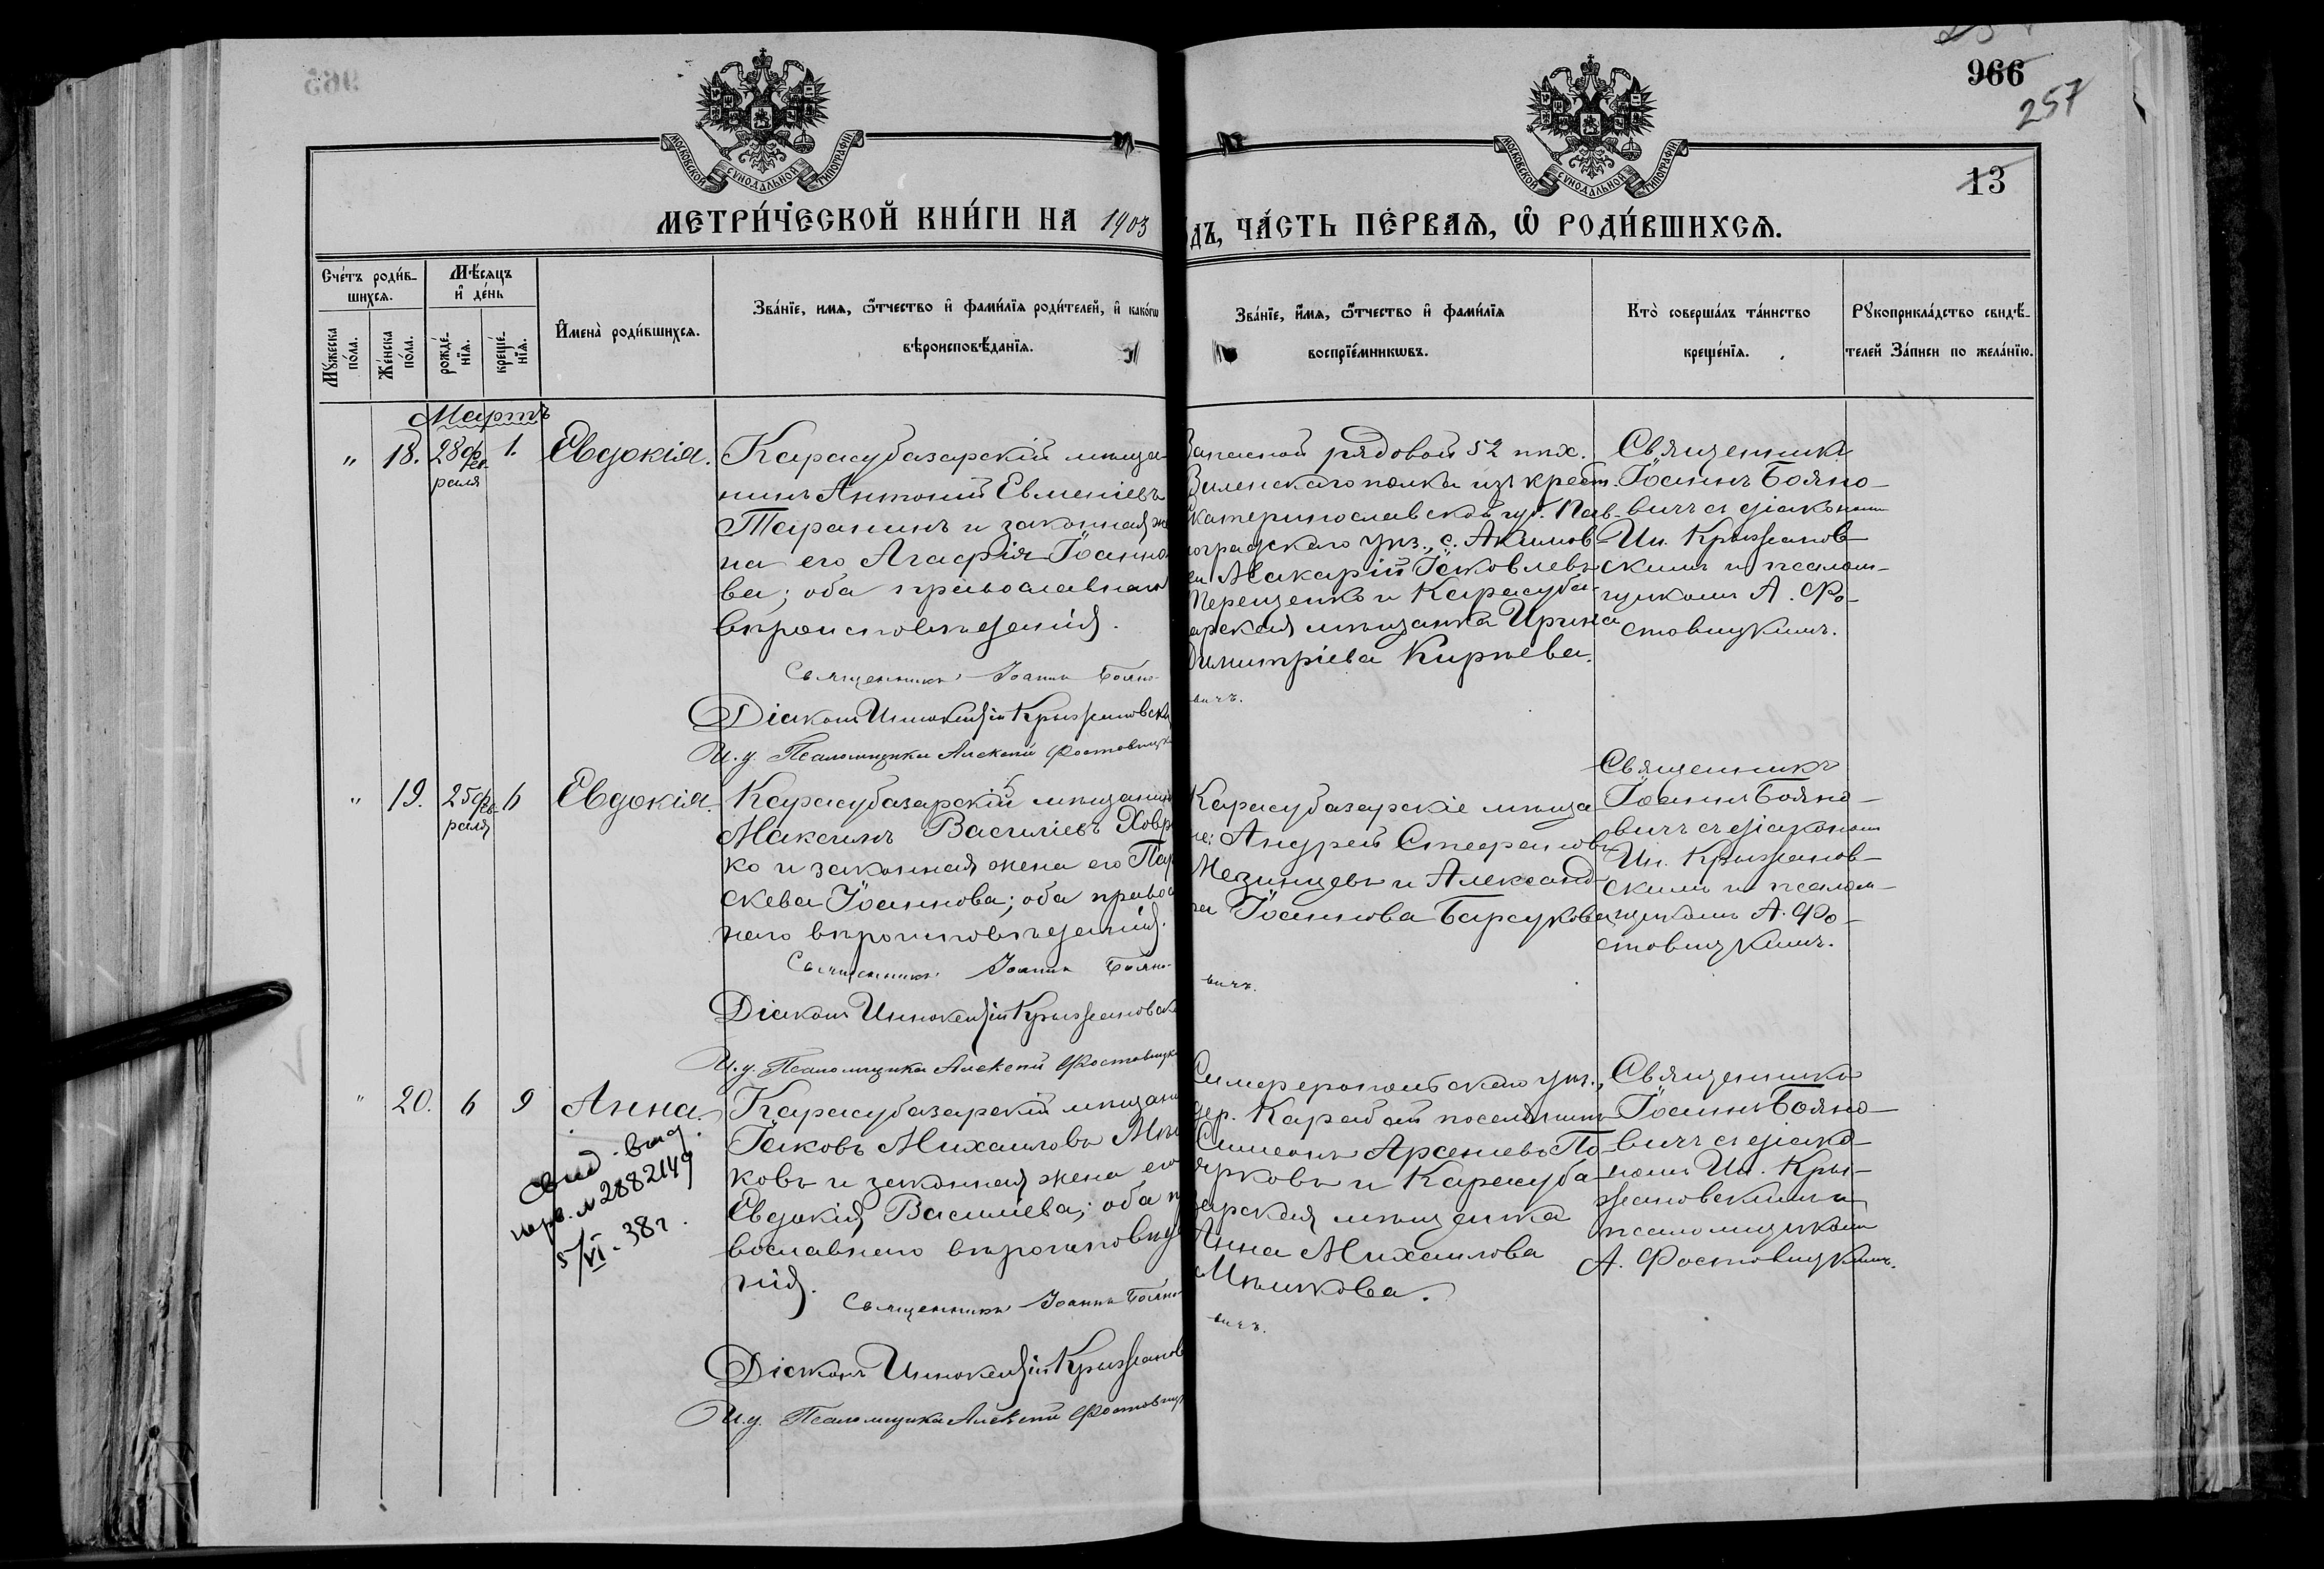 966
257
13
МОСКОВСКОЙ СУНОДАЛЬНОЙ ТИПОГРАФІИ
МОСКОВСКОЙ СУНОДАЛЬНОЙ ТИПОГРАФІИ
МЕТРИ́ЧЕСКОЙ КНИ́ГИ НА 1903
дъ, ЧА́СТЬ ПЕ́РВАѦ, Ѡ҆ РОДИ́ВШИХСѦ.
Сче́тъ роди́в-
шихсѧ.
Мꙋ́жеска по́ла.
Же́нска по́ла.
Мѣ́сѧцъ
и҆ де́нь
рожде́-
нїѧ.
креще́-
нїѧ.
И҆мена̀ роди́вшихсѧ.
Зва́нїе, имѧ, ѻ҆́тчество и҆ фами́лїѧ роди́телей, и҆ како́гѡ
вѣроисповѣ́данїѧ.
Зва́нїе, и҆́мѧ, ѻ҆́тчество и҆ фами́лїѧ
воспрїе́мникѡвъ.
Кто̀ соверша́лъ та́инство
креще́нїѧ.
Рꙋкоприкла́дство свидѣ́-
телей За́писи по жела́нїю.
Мартъ
" 18. 28 фев-
раля 1. Евдокія.
Карасубазарскій мѣща-
нинъ Антоній Евменіевъ
Таранинъ и законная же
на его Агафія Іоанно
ва; оба православнаго
вѣроисповѣданія.
Священникъ Іоаннъ Бояно-
вичъ.
Діаконъ Иннокентій Крыжановскі
И. д. Псаломщика Алексѣй Фостовицк
Запасной рядовой 52 пѣх.
Виленскаго полка изъ крест.
Екатеринославской губ. Пав-
лоградскаго уѣз., с. Акимов-
ки Макарій Іаковлевъ
Терещенко и Карасуба-
зарская мѣщанка Ирина
Димитріева Кирѣева.
Священникъ
Іоаннъ Бояно-
вичъ съ діакономъ
Ин. Крыжанов-
скимъ и псалом-
щикомъ А. Фо-
стовицкимъ.
" 19. 25 фев-
раля 6 Евдокія.
Карасубазарскій мѣщанинъ
Максимъ Василіевъ Ховр
ко и законная жена его Пар
скева Іоаннова; оба правос
наго вѣроисповѣданія.
Священникъ Іоаннъ Бояно-
вичъ.
Діаконъ Иннокентій Крыжановск
И. д. Псаломщика Алексѣй Фостовицк
Карасубазарскіе мѣща
не: Андрей Стефановъ
Мезинцевъ и Александ-
ра Іоаннова Барсукова
Священникъ
Іоаннъ Бояно-
вичъ съ діакономъ
Ин. Крыжанов-
скимъ и псалом-
щикомъ А. Фо-
стовицкимъ.
" 20. 6 9 Анна.
Свид. выд.
N 2882149
5/VI-38 г.
Карасубазарскій мѣщани
Іаковъ Михаиловъ Мѣш
ковъ и законная жена его
Евдокія Василіева; оба п
вославнаго вѣроисповѣд
нія.
Священникъ Іоаннъ Бояно-
вичъ.
Діаконъ Иннокентій Крыжанов
И. д. Псаломщика Алексѣй Фостовицк
Симферопольскаго уѣз.,
дер. Карабай поселянинъ
Симеонъ Арсеніевъ По-
ярковъ и Карасуба-
зарская мѣщанка
Анна Михаилова
Мѣшкова.
Священникъ
Іоаннъ Бояно-
вичъ съ діако-
номъ Ин. Кры-
жановскимъ и
псаломщикомъ
А. Фостовицкимъ.